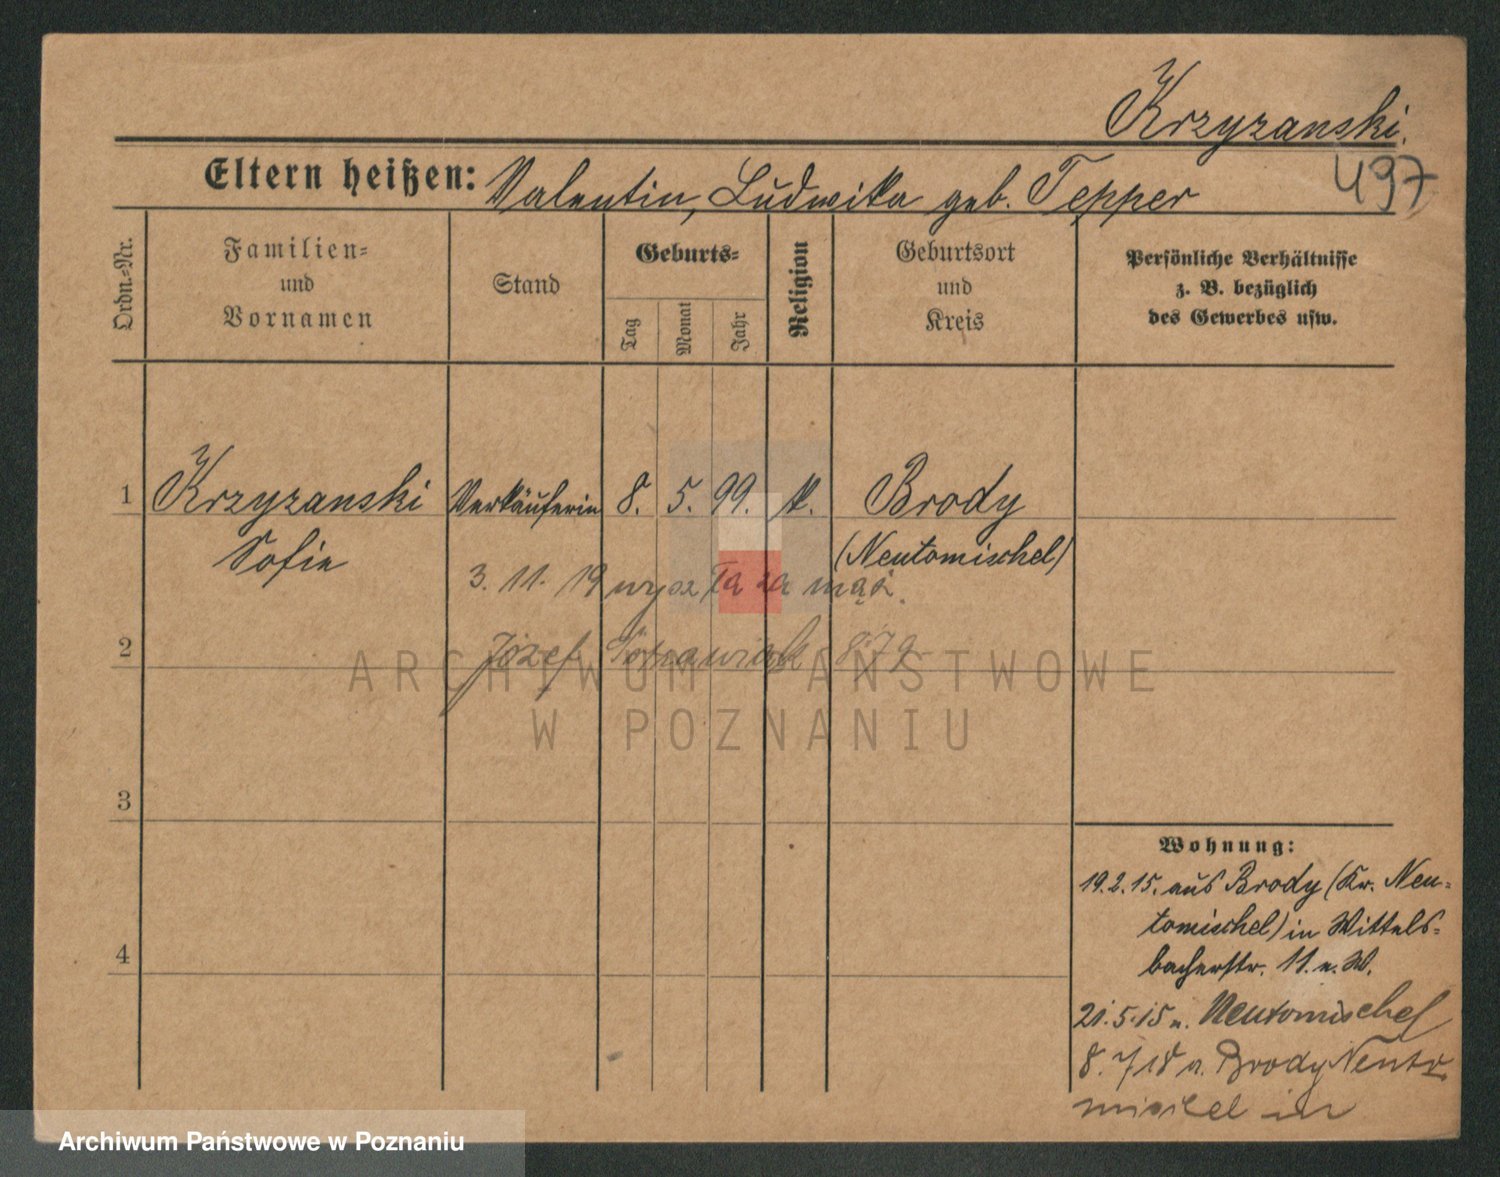 Krzyzanski.
497
Eltern heißen: Valentin, Ludwika geb. Tepper
Ordn.-Nr.
Familien-
und
Vornamen
Stand
Geburts-
Tag
Monat
Jahr
Religion
Geburtsort
und
Kreis
Persönliche Verhältnisse
z. B. bezüglich
des Gewerbes usw.
1 Krzyzanski Verkäuferin 8. 5. 99. k. Brody
Sofie (Neutomischel)
3. 11. 19 wyszła za mąż.
2 Józef 879
3
4
Wohnung:
19.2.15. aus Brody (Kr. Neu-
tomischel) in Wittels-
bacherstr. 11. n. W.
21.5.15 n. Neutomischel
8. 7 18 a. Brody Neuto
mischel in
ARCHIWUM PAŃSTWOWE
W POZNANIU
Archiwum Państwowe w Poznaniu